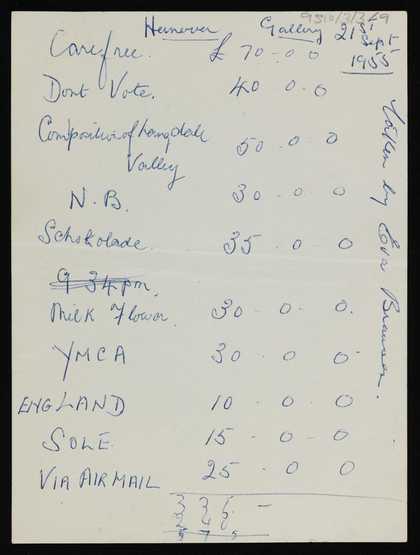 9510/2/3/49
Hanover Gallery 21st Sept
1955
Carefree. £ 70-0-0
Dont Vote. 40 0-0
Composition of Langdale
Valley 50-0-0
N.B. 30-0-0
Schokolade. 35-0-0
9 34pm.
Milk Flower. 30-0-0.
YMCA 30-0-0
ENGLAND 10-0-0
SOLE 15-0-0
VIA AIR MAIL 25-0-0
335 -
Taken by Eva